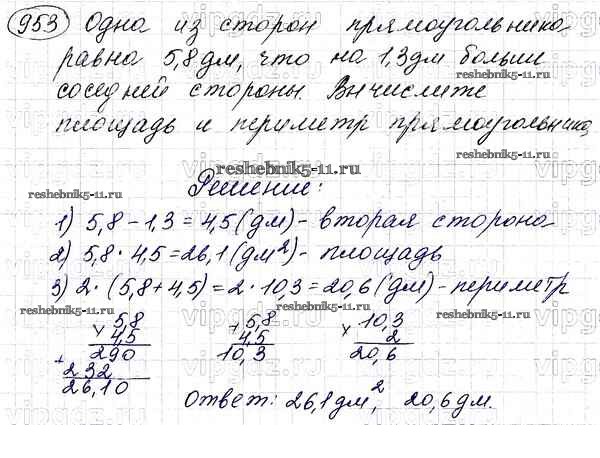 953 Одна из сторон прямоугольника
равна 5,8 дм, что на 1,3 дм больше
соседней стороны. Вычислите
площадь и периметр прямоугольника.
reshebnik5-11.ru
reshebnik5-11.ru
reshebnik5-11.ru
Решение:
1) 5,8 - 1,3 = 4,5 (дм) - вторая сторона
2) 5,8 · 4,5 = 26,1 (дм²) - площадь
3) 2 · (5,8 + 4,5) = 2 · 10,3 = 20,6 (дм) - периметр
× 5,8 + 5,8 × 10,3
4,5 4,5 2
290 10,3 20,6
+ 232
26,10
Ответ: 26,1 дм², 20,6 дм.
reshebnik5-11.ru
reshebnik5-11.ru
reshebnik5-11.ru